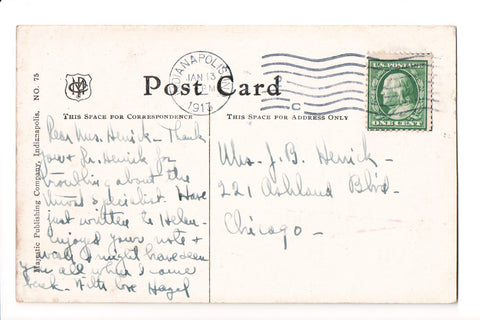 Post Card
THIS SPACE FOR CORRESPONDENCE
THIS SPACE FOR ADDRESS ONLY
NO. 75
Majestic Publishing Company, Indianapolis,
INDIANAPOLIS, IND.
JAN 13
PM
1913
C
U.S. POSTAGE
ONE CENT
Dear Mrs. Herrick - Thank
you & Dr. Herrick for
troubling about the
throat specialist. Have
just written to Helen -
enjoyed your note &
wish I might have seen
you all when I came
back. With love Hazel
Mrs. J. B. Herrick -
221 Ashland Blvd -
Chicago -